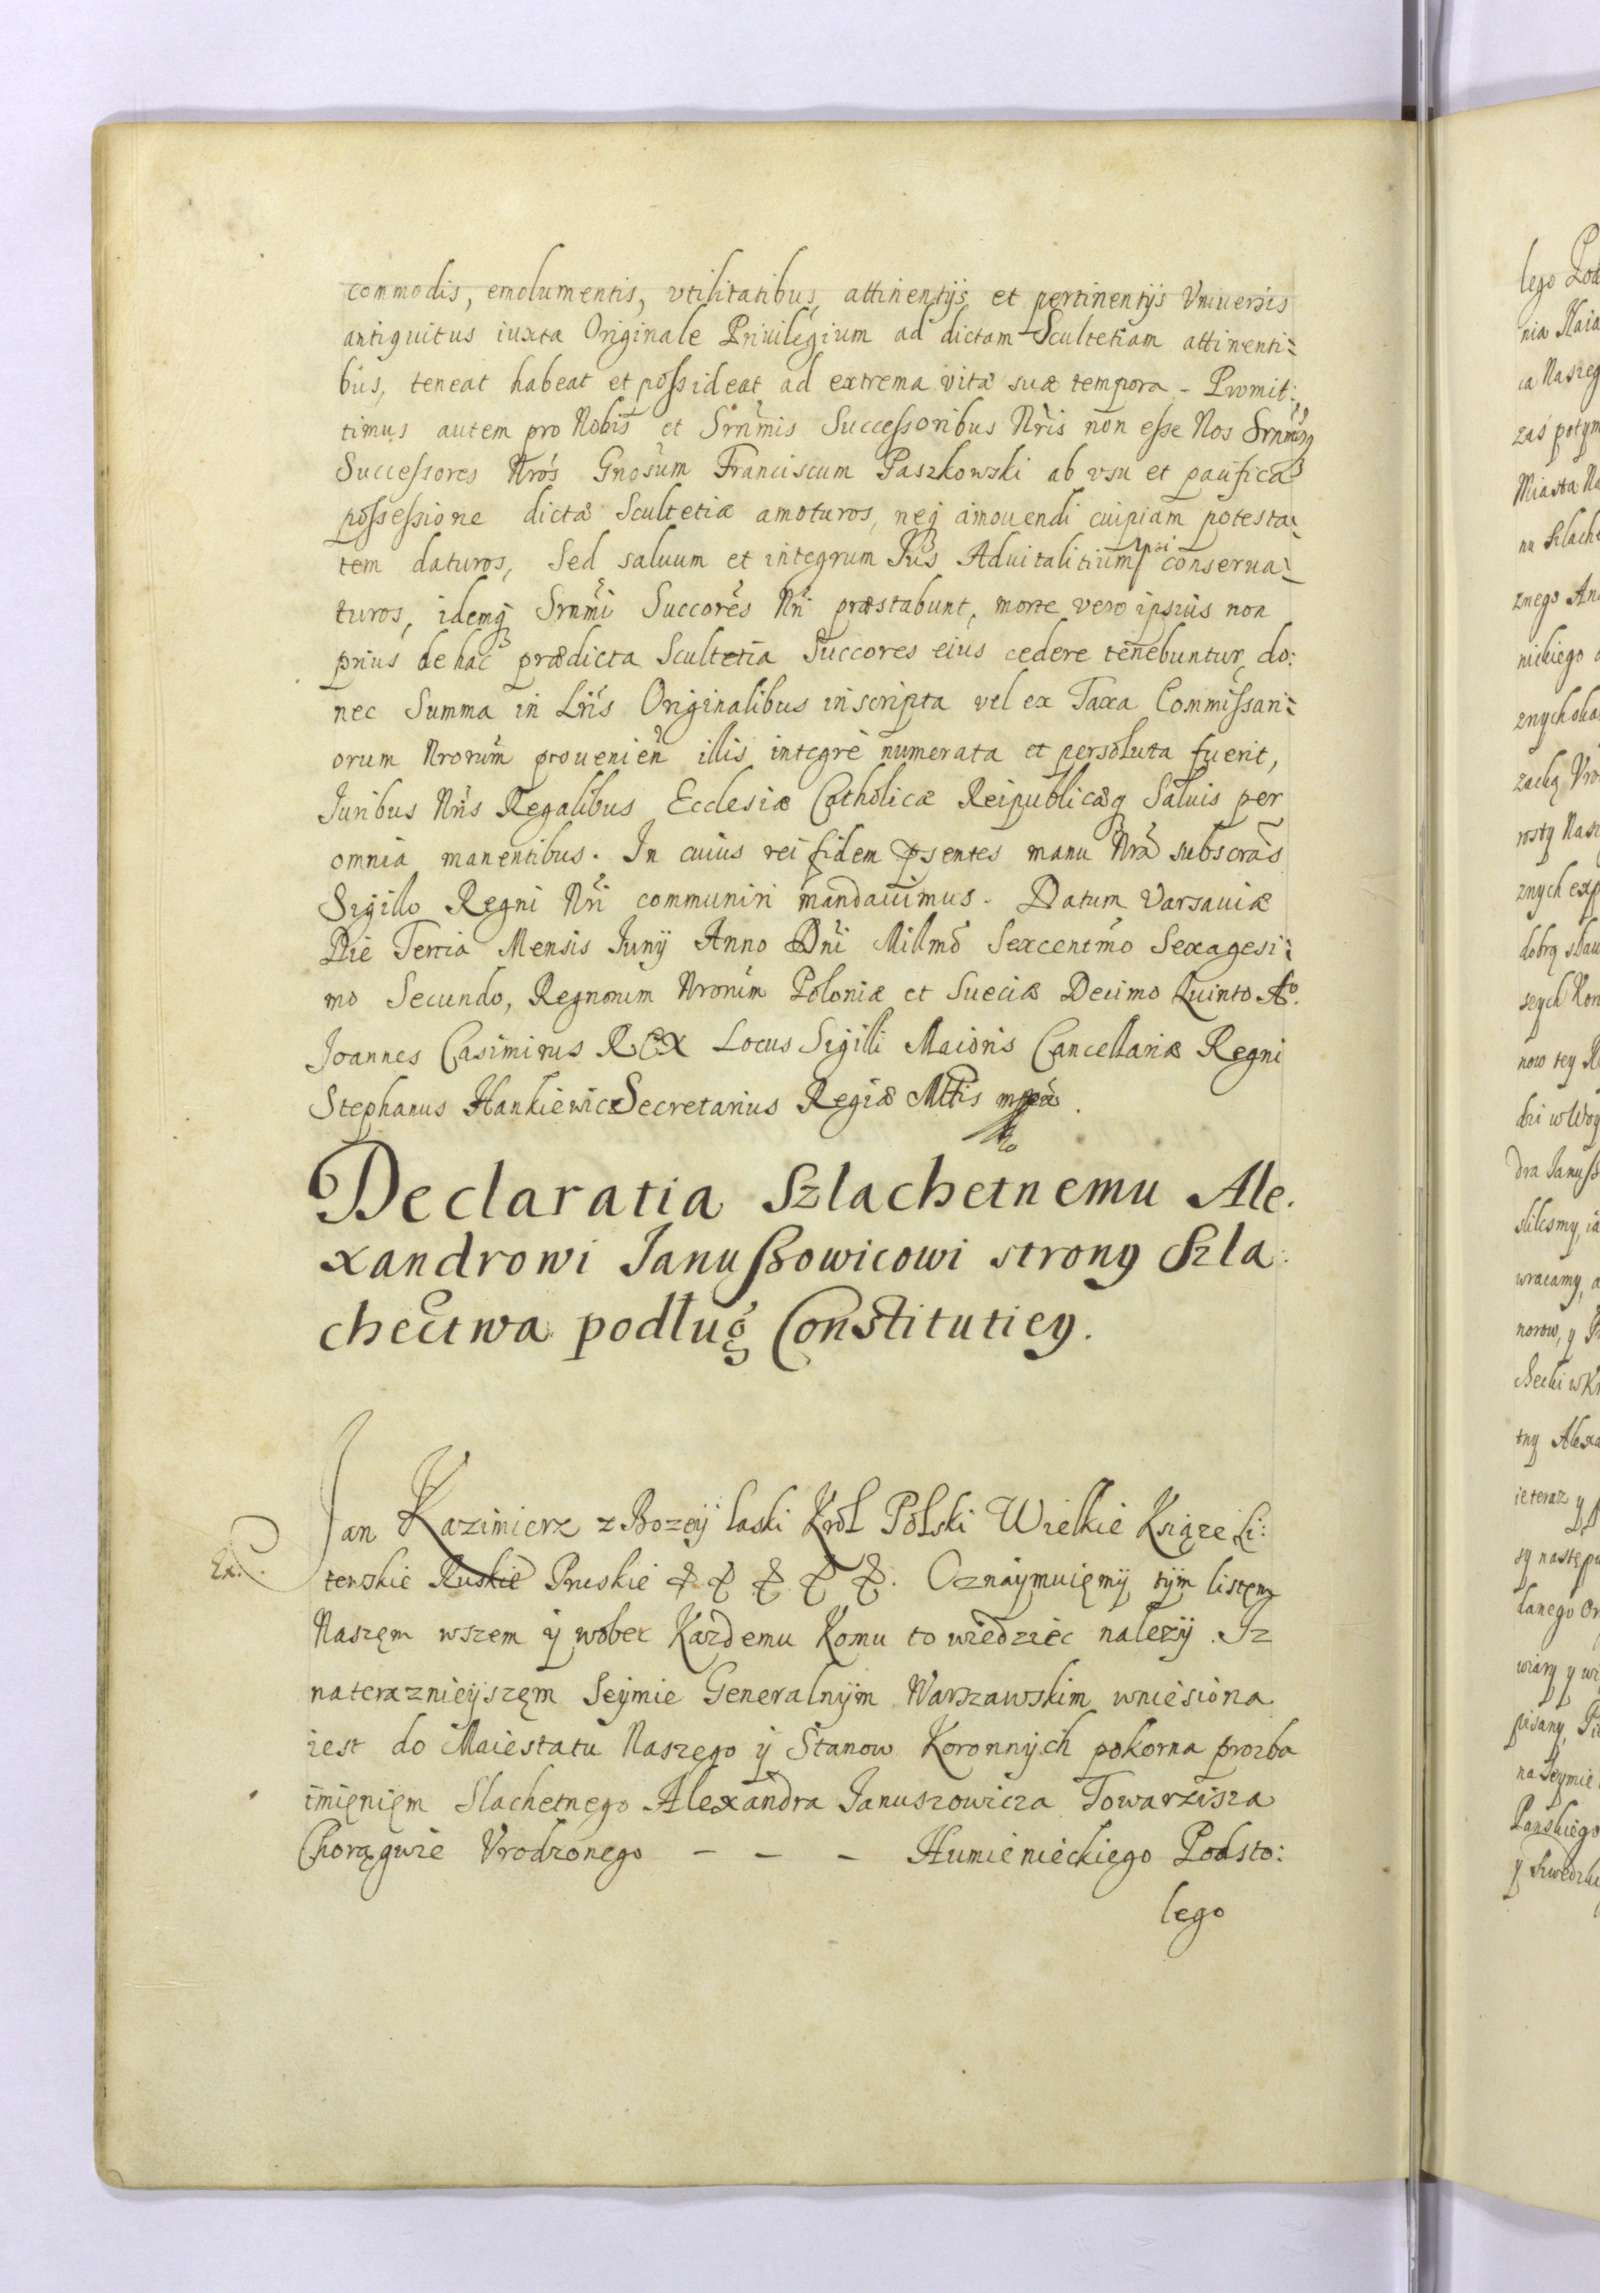 commodis, emolumentis, vtilitatibus, attinentijs et pertinentijs Vniuersis
antiquitus iuxta Originale Priuilegium ad dictam Scultetiam attinenti=
bus, teneat habeat et possideat ad extrema vitæ suæ tempora - Promit:
timus autem pro Nobis et Srnmis Successoribus Nris non esse Nos Srnmosq
Successores Nros Gnosum Franciscum Paszkowski ab vsu et paufica
possessione dictæ Scultetiæ amoturos, neq amouendi cuipiam potesta=
tem daturos, Sed saluum et integrum Jus Aduitalitium ipsi conserua=
turos, idemq Srnmi Succores Nri præstabunt, morte vero ipsius non
prius de hac prædicta Scultetia Succores eius cedere tenebuntur, do:
nec Summa in Lris Originalibus inscripta vel ex Taxa Commissari=
orum Nrorum prouenien illis integrè numerata et persoluta fuerit,
Juribus Nris Regalibus Ecclesiæ Catholicæ Reipublicæq Saluis per
omnia manentibus. In cuius rei fidem psentes manu Nra subscras
Sigillo Regni Nri communiri mandauimus. Datum Varsauiæ
Die Tertia Mensis Junij Anno Dni Millmo Sexcentmo Sexagesi=
mo Secundo, Regnorum Nrorum Poloniæ et Sueciæ Decimo Quinto Ao.
Joannes Casimirus REX Locus Sigilli Maioris Cancellariæ Regni
Stephanus Hankiewicz Secretarius Regiæ Mttis mpa.
Declaratia Szlachetnemu Ale.
xandrowi Janußowicowi strony Szla:
chectwa podług Constitutiey.
Jan Kazimierz z Bozey laski Krol Polski Wielkie Książe Li:
Ex.
tewskie Ruskie Pruskie & & & & &. Oznaymuięmy tym listęm
Naszęm wszem y wobec Kazdemu Komu to wiedziec nalezy. Iz
nateraznieyszęm Seymie Generalnym Warszawskim wniesiona
iest do Maiestatu Naszego y Stanow Koronnych pokorna prozba
imięnięm Slachetnego Alexandra Januszowicza Towarzisza
Chorągwie Vrodzonego - - - Humienieckiego Podsto:
lego